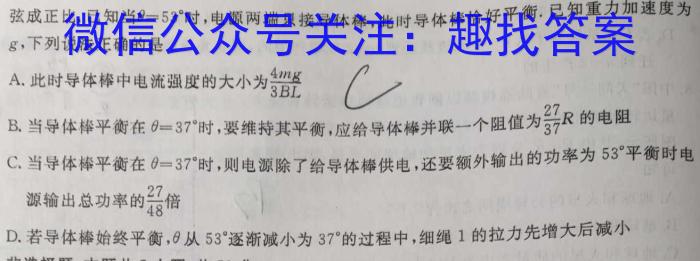 弦成正比.已知当θ=53°时,电源两端只接导体棒,此时导体棒恰好平衡.已知重力加速度为
微信公众号关注：趣找答案
g,下列说法正确的是
A. 此时导体棒中电流强度的大小为4mg/3BL
C
B. 当导体棒平衡在 θ=37°时,要维持其平衡,应给导体棒并联一个阻值为27/37 R 的电阻
C. 当导体棒平衡在 θ=37°时,则电源除了给导体棒供电,还要额外输出的功率为 53°平衡时电
源输出总功率的27/48倍
D. 若导体棒始终平衡,θ从 53°逐渐减小为 37°的过程中,细绳 1 的拉力先增大后减小